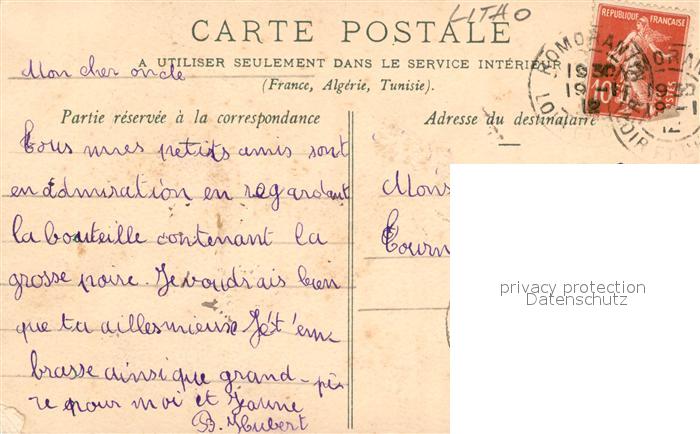 LITHO
CARTE POSTALE
A UTILISER SEULEMENT DANS LE SERVICE INTÉRIEUR
(France, Algérie, Tunisie).
REPUBLIQUE FRANÇAISE
10
POSTES
ROMORANTIN
19 30
LOIR-ET-CHER
Mon cher oncle
Partie réservée à la correspondance
Tous mes petits amis sont
en admiration en regardant
la bouteille contenant la
grosse poire. Je voudrais bien
que ta ailles mieuse Je t'em-
brasse ainsi que grand-pè-
re pour moi et Jeanne
B. Hubert
Adresse du destinataire
Mons
Tourn
privacy protection
Datenschutz